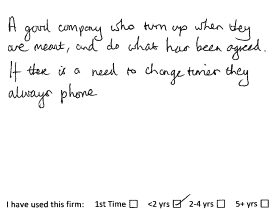 A good company who turn up when they
are meant, and do what has been agreed.
If there is a need to change times they
always phone
I have used this firm: 1st Time ☐ <2 yrs ☑ 2-4 yrs ☐ 5+ yrs ☐